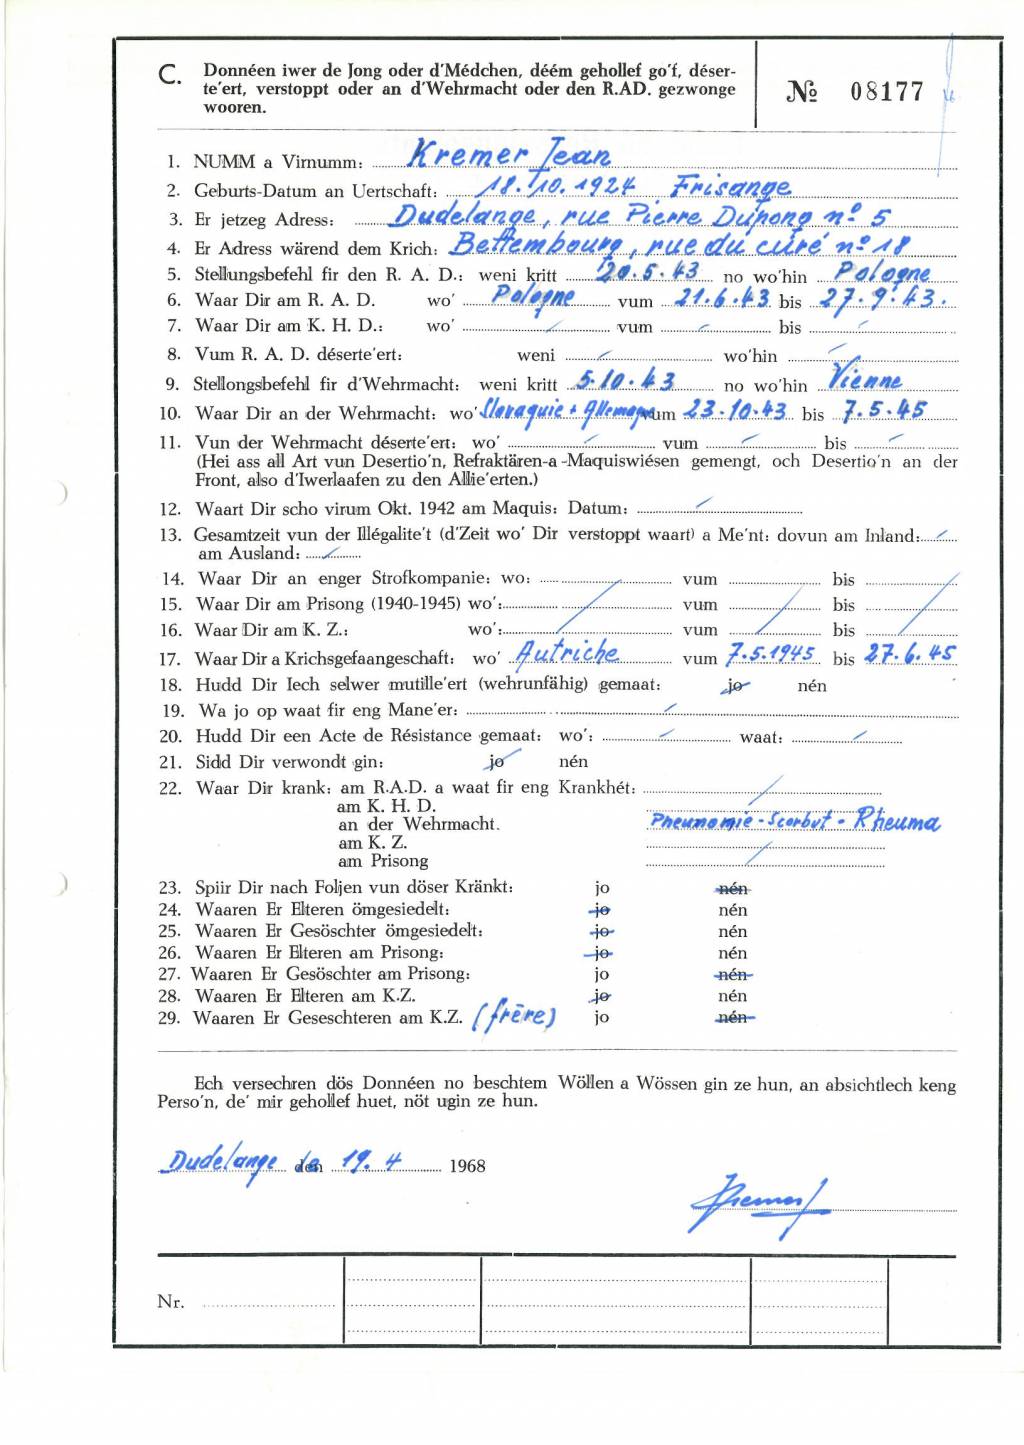 C. Donnéen iwer de Jong oder d'Médchen, déém gehollef go'f, déser-
te'ert, verstoppt oder an d'Wehrmacht oder den R.AD. gezwonge
wooren.
№ 08177
1. NUMM a Virnumm: Kremer Jean
2. Geburts-Datum an Uertschaft: 18.10.1924 Frisange
3. Er jetzeg Adress: Dudelange, rue Pierre Dupong nº 5
4. Er Adress wärend dem Krich: Bettembourg, rue du curé nº 18
5. Stellungsbefehl fir den R. A. D.: weni kritt 20.5.43 no wo'hin Pologne
6. Waar Dir am R. A. D. wo' Pologne vum 21.6.43 bis 27.9.43.
7. Waar Dir am K. H. D.: wo' vum bis
8. Vum R. A. D. déserte'ert: weni wo'hin
9. Stellongsbefehl fir d'Wehrmacht: weni kritt 5.10.43 no wo'hin Vienne
10. Waar Dir an der Wehrmacht: wo' Slovaquie + Allemagne vum 23.10.43 bis 7.5.45
11. Vun der Wehrmacht déserte'ert: wo' vum bis
(Hei ass all Art vun Desertio'n, Refraktären-a-Maquiswiésen gemengt, och Desertio'n an der
Front, also d'Iwerlaafen zu den Allie'erten.)
12. Waart Dir scho virum Okt. 1942 am Maquis: Datum:
13. Gesamtzeit vun der Illégalite't (d'Zeit wo' Dir verstoppt waart) a Me'nt: dovun am Inland:
am Ausland:
14. Waar Dir an enger Strofkompanie: wo: vum bis
15. Waar Dir am Prisong (1940-1945) wo': vum bis
16. Waar Dir am K. Z.: wo': vum bis
17. Waar Dir a Krichsgefaangeschaft: wo' Autriche vum 7.5.1945 bis 27.6.45
18. Hudd Dir Iech selwer mutille'ert (wehrunfähig) gemaat: jo nén
19. Wa jo op waat fir eng Mane'er:
20. Hudd Dir een Acte de Résistance gemaat: wo': waat:
21. Sidd Dir verwondt gin: jo nén
22. Waar Dir krank: am R.A.D. a waat fir eng Krankhét:
am K. H. D.
an der Wehrmacht. Pneunomie - Scorbut - Rheuma
am K. Z.
am Prisong
23. Spiir Dir nach Foljen vun döser Kränkt: jo nén
24. Waaren Er Elteren ömgesiedelt: jo nén
25. Waaren Er Gesöschter ömgesiedelt: jo nén
26. Waaren Er Elteren am Prisong: jo nén
27. Waaren Er Gesöschter am Prisong: jo nén
28. Waaren Er Elteren am K.Z. jo nén
29. Waaren Er Geseschteren am K.Z. (frère) jo nén
Ech versechren dös Donnéen no beschtem Wöllen a Wössen gin ze hun, an absichtlech keng
Perso'n, de' mir gehollef huet, nöt ugin ze hun.
Dudelange den 19.4 1968
Kremer J
Nr.